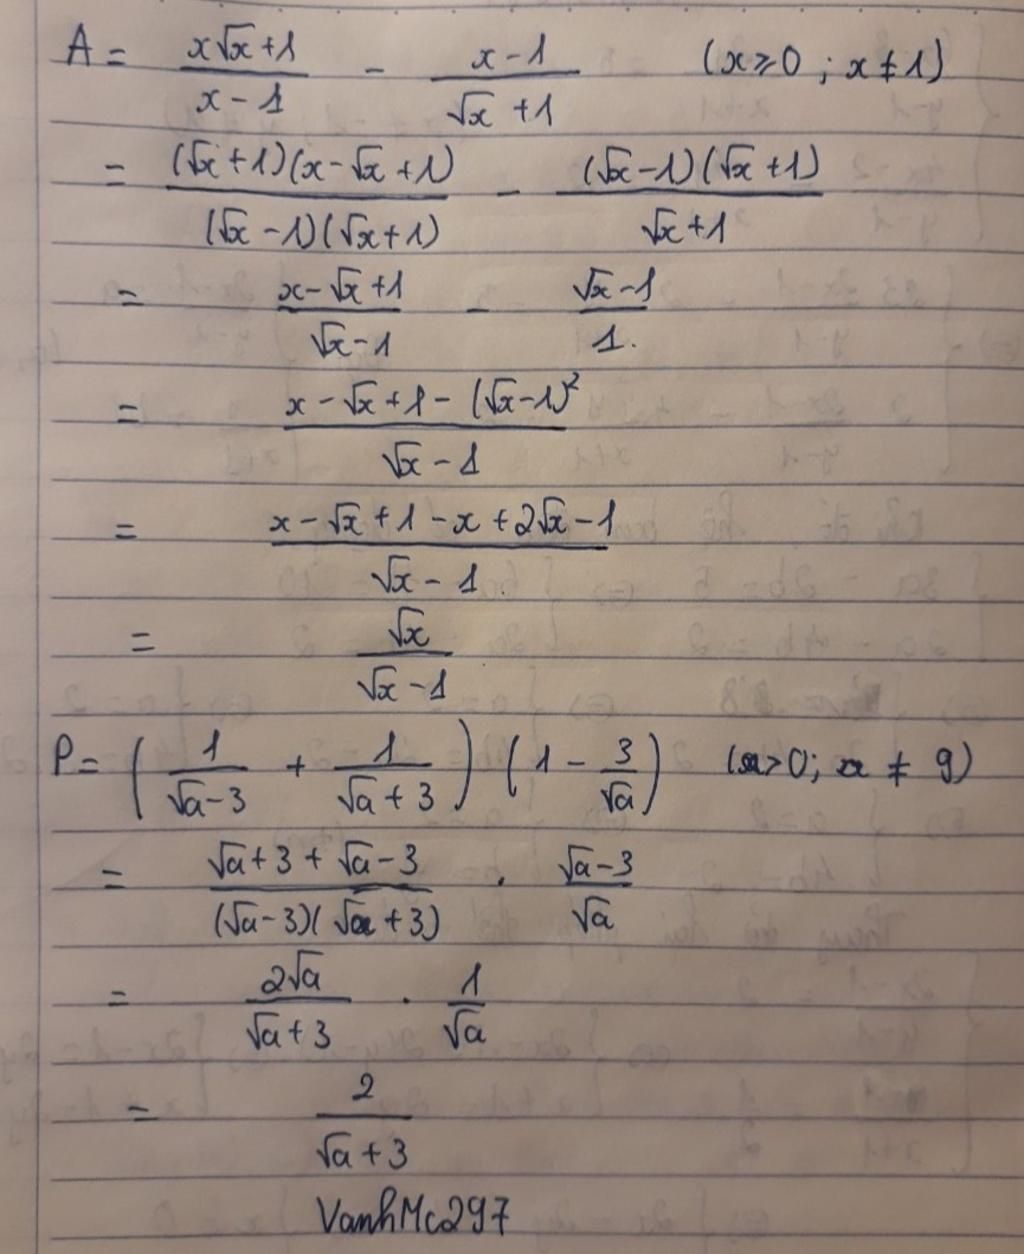 A = (x√x + 1)/(x - 1) - (x - 1)/(√x + 1) (x ⩾ 0 ; x ≠ 1)
= ((√x + 1)(x - √x + 1))/((√x - 1)(√x + 1)) - ((√x - 1)(√x + 1))/(√x + 1)
= (x - √x + 1)/(√x - 1) - (√x - 1)/1.
= (x - √x + 1 - (√x - 1)²)/(√x - 1)
= (x - √x + 1 - x + 2√x - 1)/(√x - 1)
= √x/(√x - 1)
P = (1/(√a - 3) + 1/(√a + 3)) (1 - 3/√a) (a > 0; a ≠ 9)
= (√a + 3 + √a - 3)/((√a - 3)(√a + 3)) . (√a - 3)/√a
= 2√a/(√a + 3) . 1/√a
= 2/(√a + 3)
VanhMc297